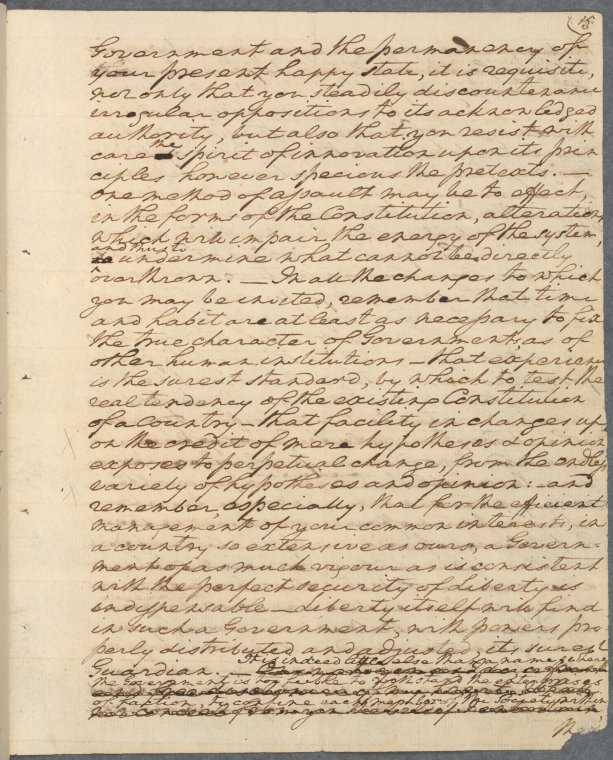 15
Government and the permanency of
your present happy state, it is requisite,
not only that you steadily discountenance
irregular oppositions to its acknowledged
authority, but also that you resist with
care the spirit of innovation upon its prin
ciples however specious the pretexts. —
one method of assault may be to effect,
in the forms of the Constitution, alterations
which will impair the energy of the system,
and thus to
undermine what cannot be directly
overthrown. — In all the changes to which
you may be invited, remember that time
and habit are at least as necessary to fix
the true character of Governments, as of
other human institutions — that experience
is the surest standard, by which to test the
real tendency of the existing Constitution
of a Country — that facility in changes up
on the credit of mere hypotheses & opinion
exposes to perpetual change, from the endless
variety of hypotheses and opinion: — and
remember, especially, that for the efficient
management of your common interests, in
a country so extensive as ours, a Govern-
ment of as much vigour as is consistent
with the perfect security of Liberty is
indispensable — Liberty itself will find
in such a Government, with powers pro
perly distributed and adjusted, its surest
Guardian.
It is indeed little else than a name, where
the Government is too feeble to withstand the enterprises
of faction, to confine each member of the Society within
the